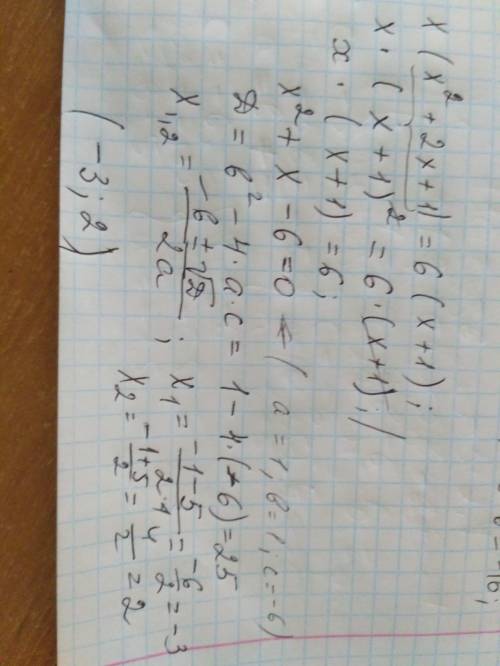 x (x² + 2x + 1) = 6 (x+1);
x · (x+1)² = 6 · (x+1); /
x · (x+1) = 6;
x² + x - 6 = 0 ← ( a = 1, b = 1; c = -6)
D = b² - 4·a·c = 1 - 4·(-6) = 25
x₁,₂ = (-b ± √D)/2a ; x₁ = (-1-5)/(2·1) = -6/2 = -3
x₂ = (-1+5)/2 = 4/2 = 2
(-3; 2)